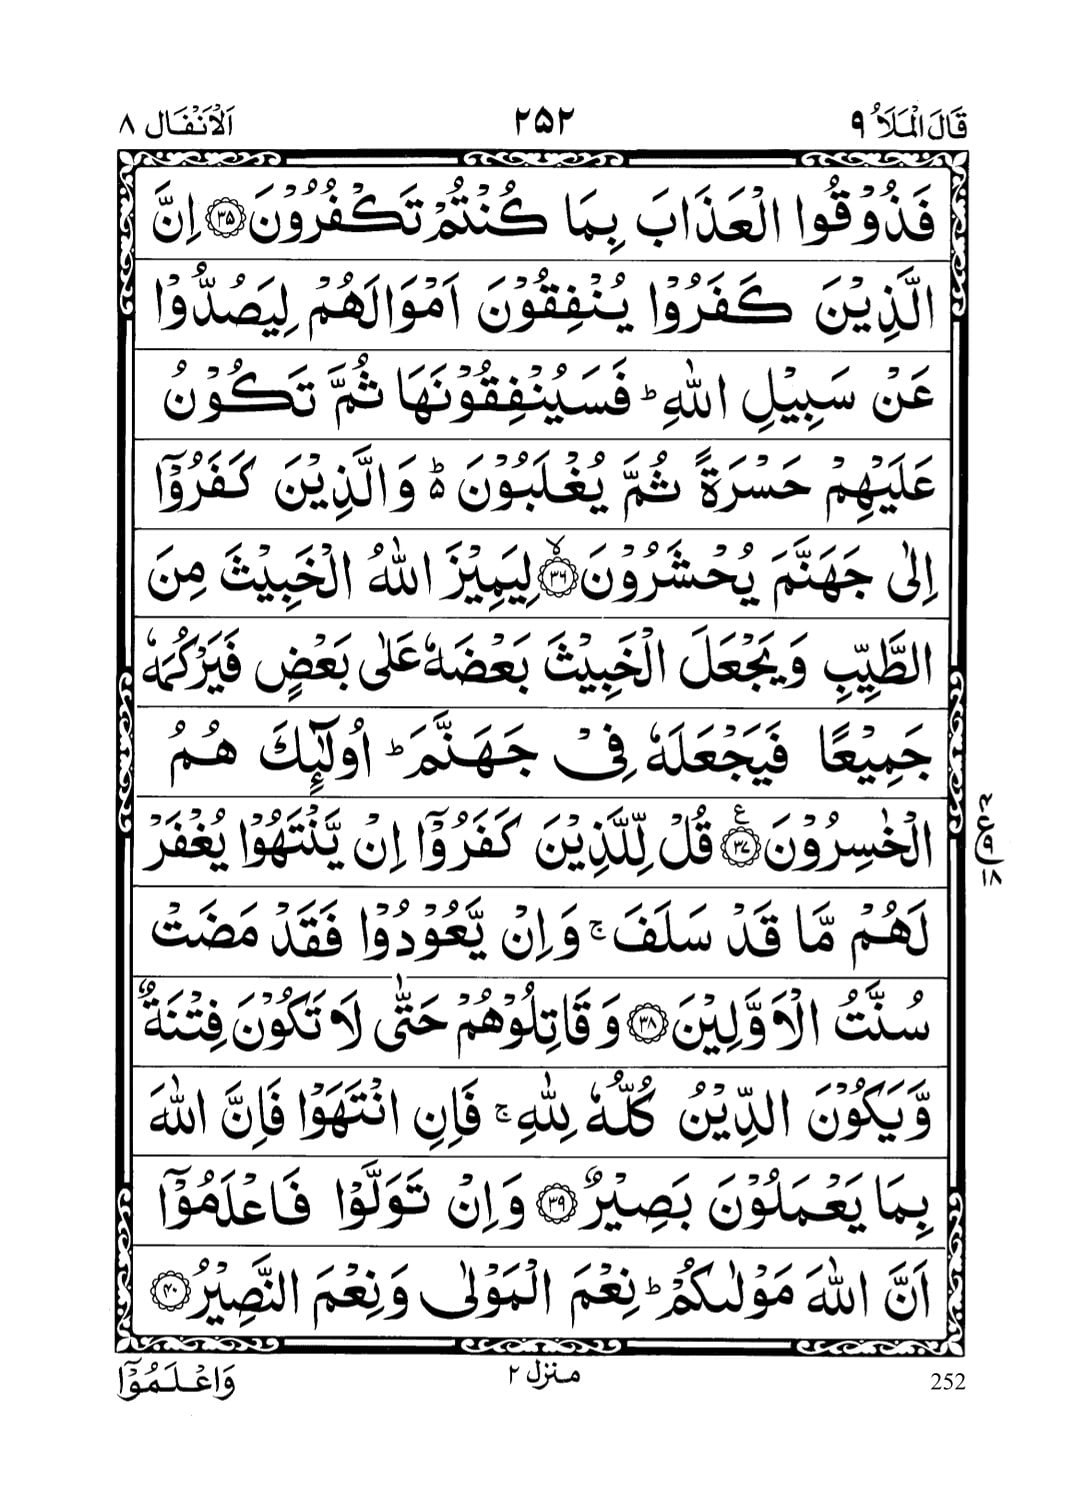 قَالَ الْمَلَاُ ۹
۲۵۲
اَلْاَنْفَال ۸
فَذُوْقُوا الْعَذَابَ بِمَا كُنْتُمْ تَكْفُرُوْنَ ﴿۳۵﴾ اِنَّ
الَّذِيْنَ كَفَرُوْا يُنْفِقُوْنَ اَمْوَالَهُمْ لِيَصُدُّوْا
عَنْ سَبِيْلِ اللّٰهِ ؕ فَسَيُنْفِقُوْنَهَا ثُمَّ تَكُوْنُ
عَلَيْهِمْ حَسْرَةً ثُمَّ يُغْلَبُوْنَ ۬ؕ وَالَّذِيْنَ كَفَرُوْۤا
اِلٰى جَهَنَّمَ يُحْشَرُوْنَ ﴿ۙ۳۶﴾ لِيَمِيْزَ اللّٰهُ الْخَبِيْثَ مِنَ
الطَّيِّبِ وَيَجْعَلَ الْخَبِيْثَ بَعْضَهٗ عَلٰى بَعْضٍ فَيَرْكُمَهٗ
جَمِيْعًا فَيَجْعَلَهٗ فِيْ جَهَنَّمَ ؕ اُولٰٓئِكَ هُمُ
الْخٰسِرُوْنَ ﴿۳۷﴾ ع قُلْ لِّلَّذِيْنَ كَفَرُوْۤا اِنْ يَّنْتَهُوْا يُغْفَرْ
ع ۹ ۱۸
لَهُمْ مَّا قَدْ سَلَفَ ۚ وَاِنْ يَّعُوْدُوْا فَقَدْ مَضَتْ
سُنَّتُ الْاَوَّلِيْنَ ﴿۳۸﴾ وَقَاتِلُوْهُمْ حَتّٰى لَا تَكُوْنَ فِتْنَةٌ
وَّيَكُوْنَ الدِّيْنُ كُلُّهٗ لِلّٰهِ ۚ فَاِنِ انْتَهَوْا فَاِنَّ اللّٰهَ
بِمَا يَعْمَلُوْنَ بَصِيْرٌ ﴿۳۹﴾ وَاِنْ تَوَلَّوْا فَاعْلَمُوْۤا
اَنَّ اللّٰهَ مَوْلٰىكُمْ ؕ نِعْمَ الْمَوْلٰى وَنِعْمَ النَّصِيْرُ ﴿۴۰﴾
وَاعْلَمُوْۤا
منزل ۲
252